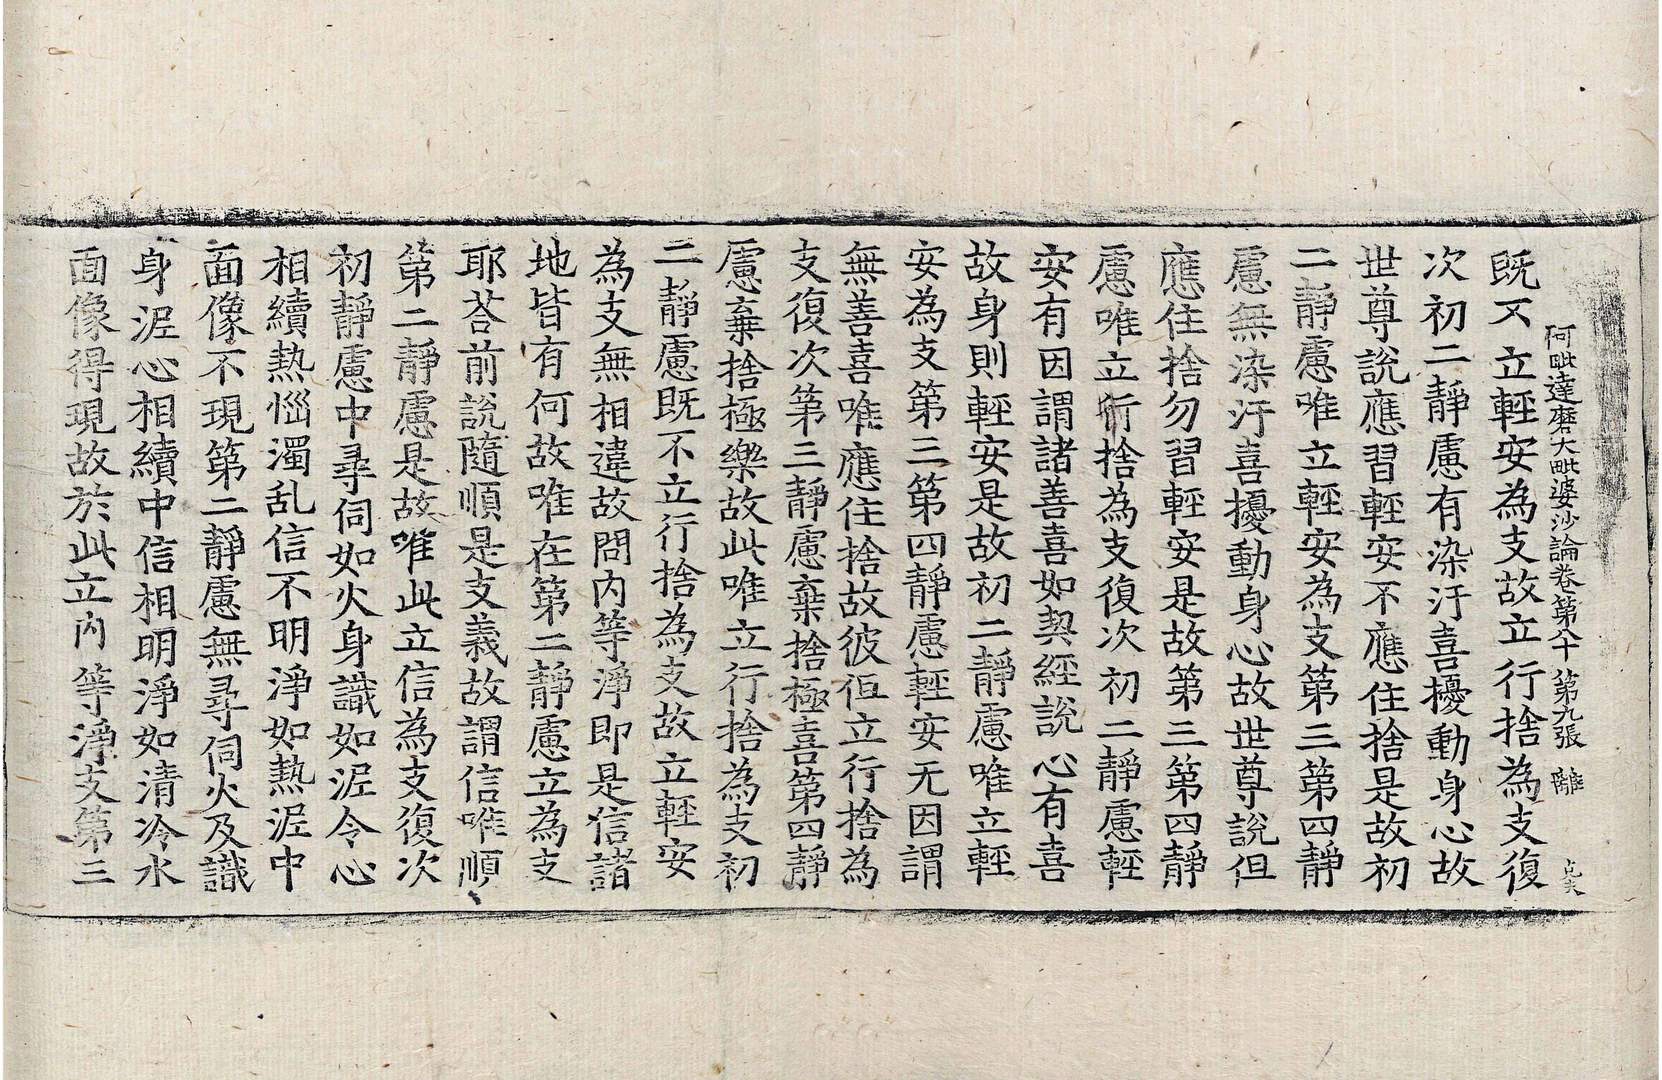 阿毗達磨大毗婆沙論卷第八十 第九張 離
既不立輕安為支故立行捨為支復
次初二靜慮有染汙喜擾動身心故
世尊說應習輕安不應住捨是故初
二靜慮唯立輕安為支第三第四靜
慮無染汙喜擾動身心故世尊說但
應住捨勿習輕安是故第三第四靜
慮唯立行捨為支復次初二靜慮輕
安有因謂諸善喜如契經說心有喜
故身則輕安是故初二靜慮唯立輕
安為支第三第四靜慮輕安无因謂
無善喜唯應住捨故彼但立行捨為
支復次第三靜慮棄捨極喜第四靜
慮棄捨極樂故此唯立行捨為支初
二靜慮既不立行捨為支故立輕安
為支無相違故問內等淨即是信諸
地皆有何故唯在第二靜慮立為支
耶荅前說隨順是支義故謂信唯順
第二靜慮是故唯此立信為支復次
初靜慮中尋伺如火身識如泥令心
相續熱惱濁乱信不明淨如熱泥中
面像不現第二靜慮無尋伺火及識
身泥心相續中信相明淨如清冷水
面像得現故於此立內等淨支第三